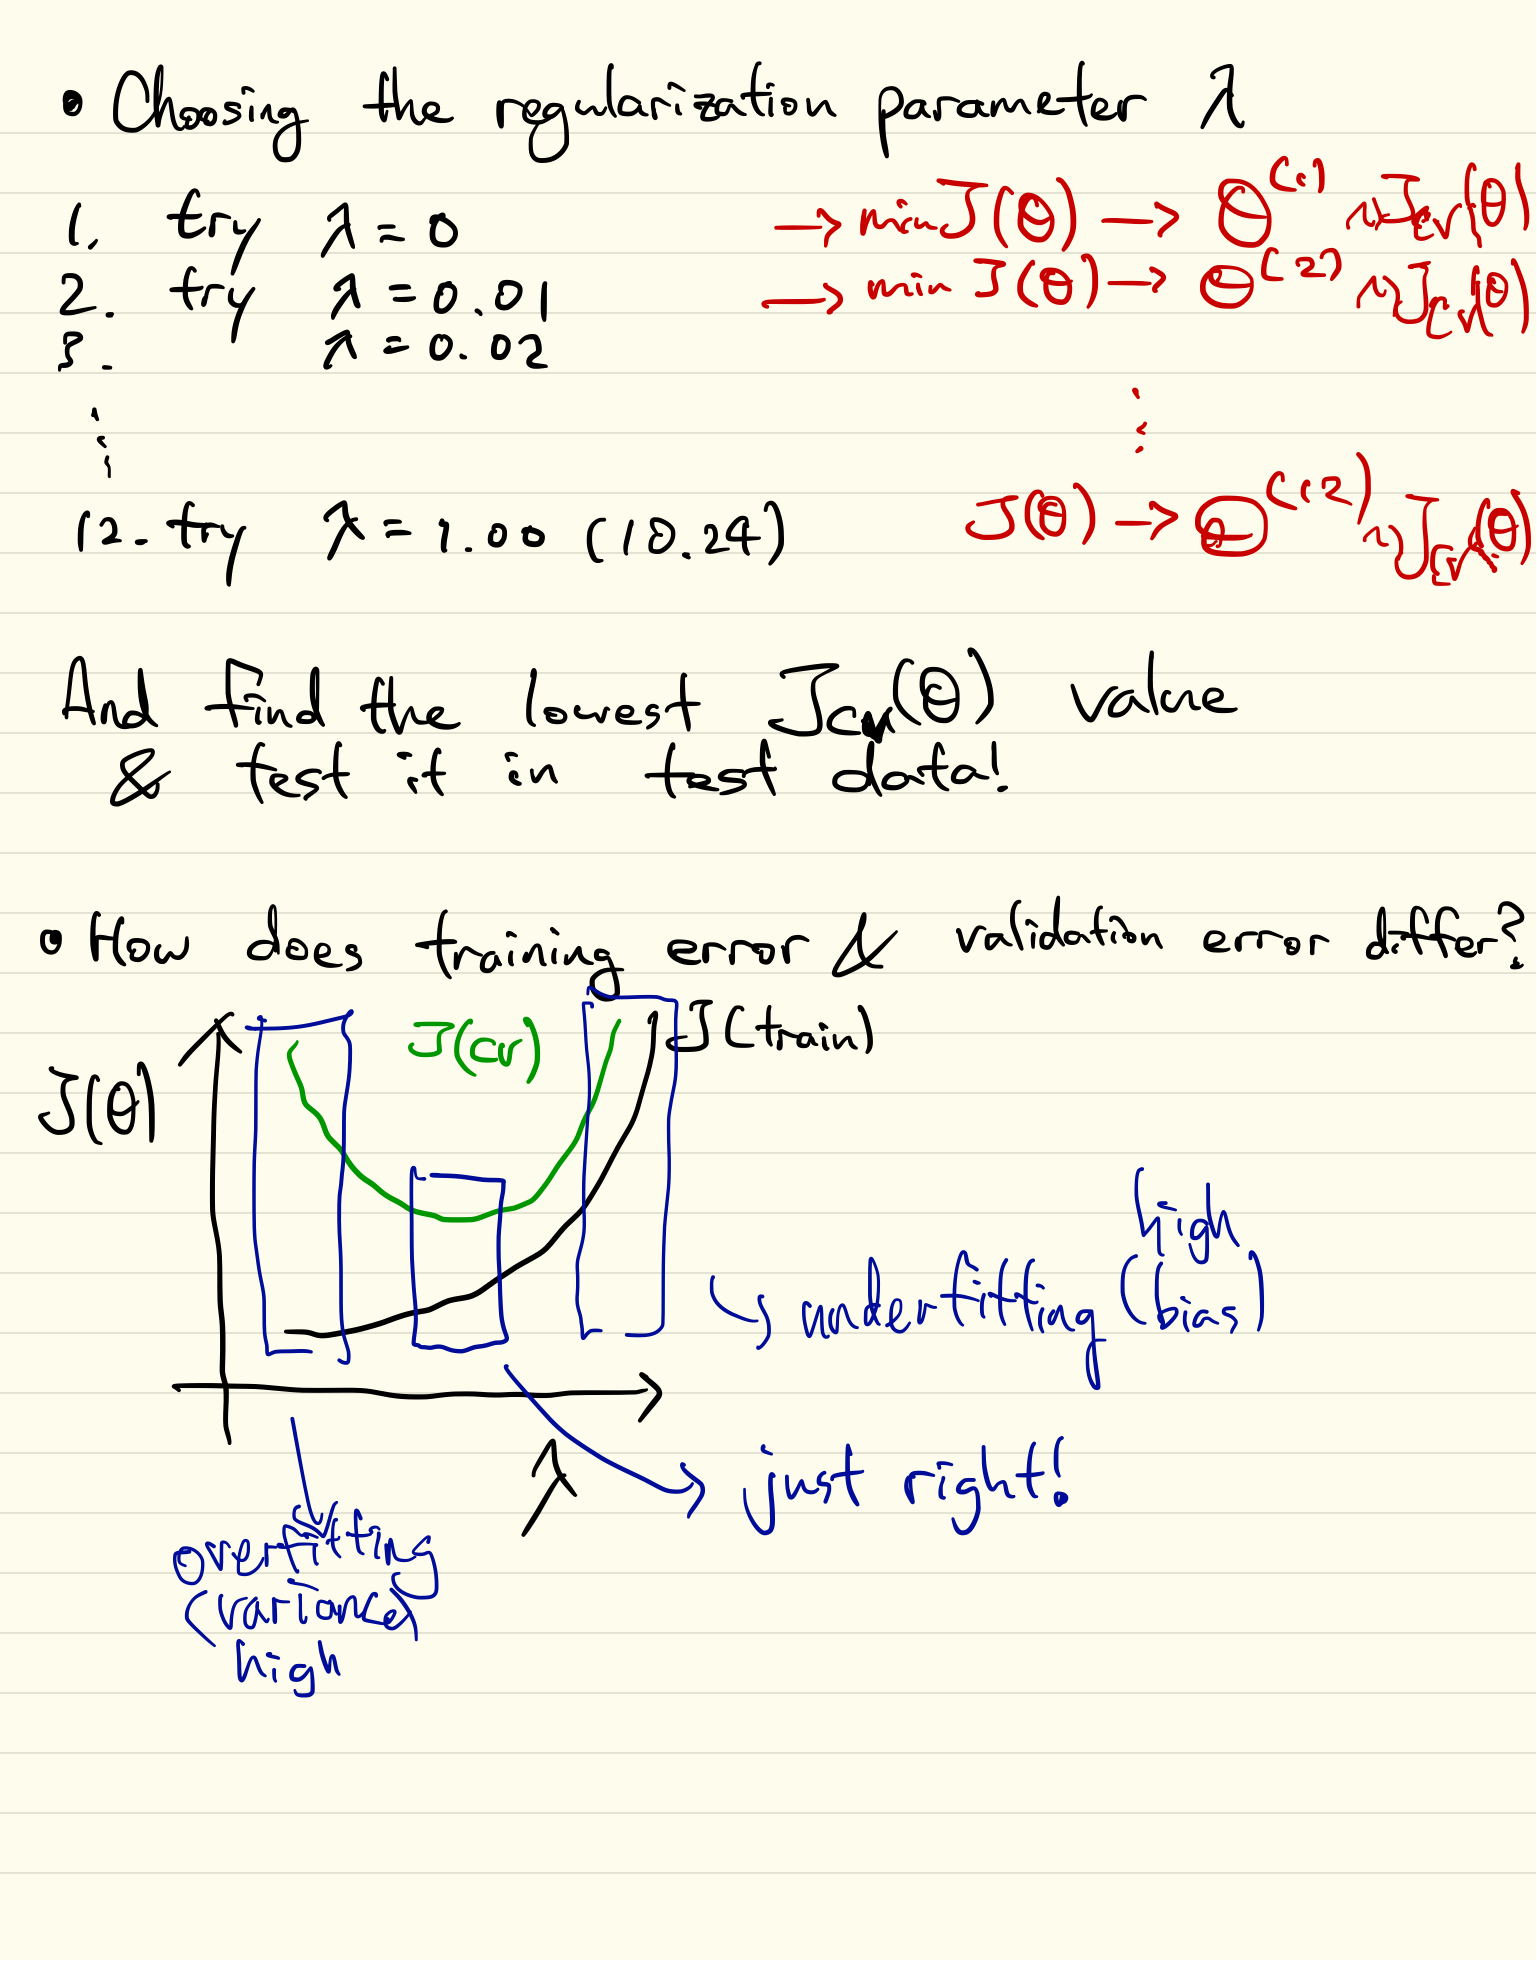 • Choosing the regularization parameter λ
1. try λ = 0 → min J(θ) → θ^(1) ~> Jcv(θ)
2. try λ = 0.01 → min J(θ) → θ^(2) ~> Jcv(θ)
3. λ = 0.02
⋮ ⋮
12. try λ = 1.00 (10.24) J(θ) → θ^(12) ~> Jcv(θ)
And find the lowest Jcv(θ) value
& test it in test data!
• How does training error & validation error differ?
J(cv) J(train)
J(θ)
high
underfitting (bias)
λ
just right!
overfitting
(variance)
high